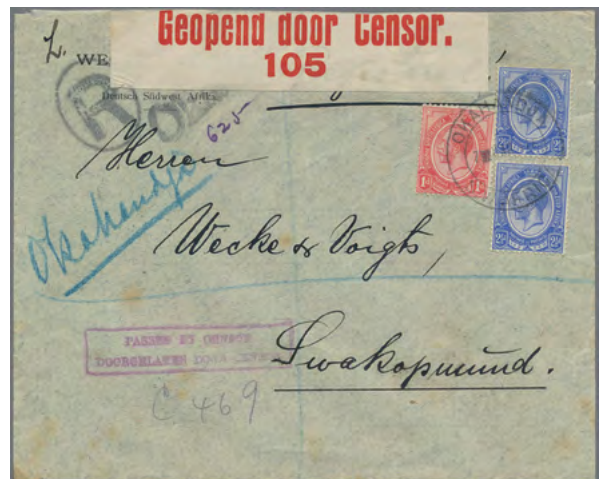 Geopend door Censor.
105
WE
R
Deutsch Südwest Afrika
625
Herren
Okahandja
Wecke & Voigts,
PASSED BY CENSOR
DOORGELATEN DOOR
Swakopmund.
C 469